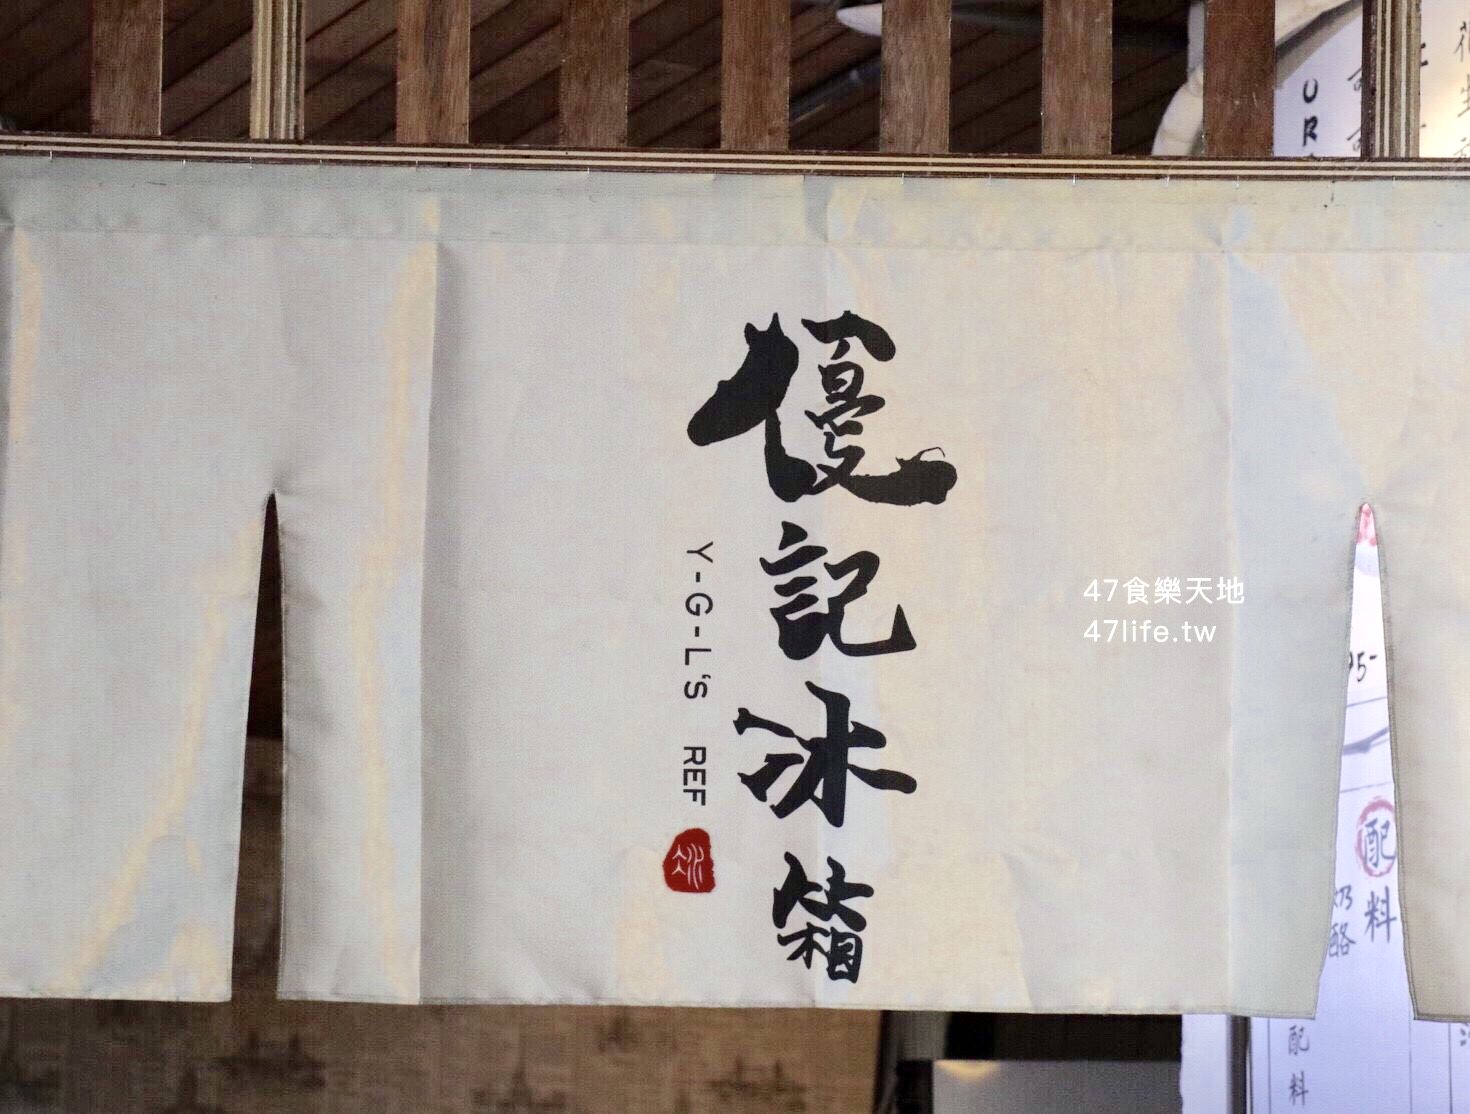 優記冰箱
Y-G-L's REF
47食樂天地
47life.tw
配料
奶酪
配料